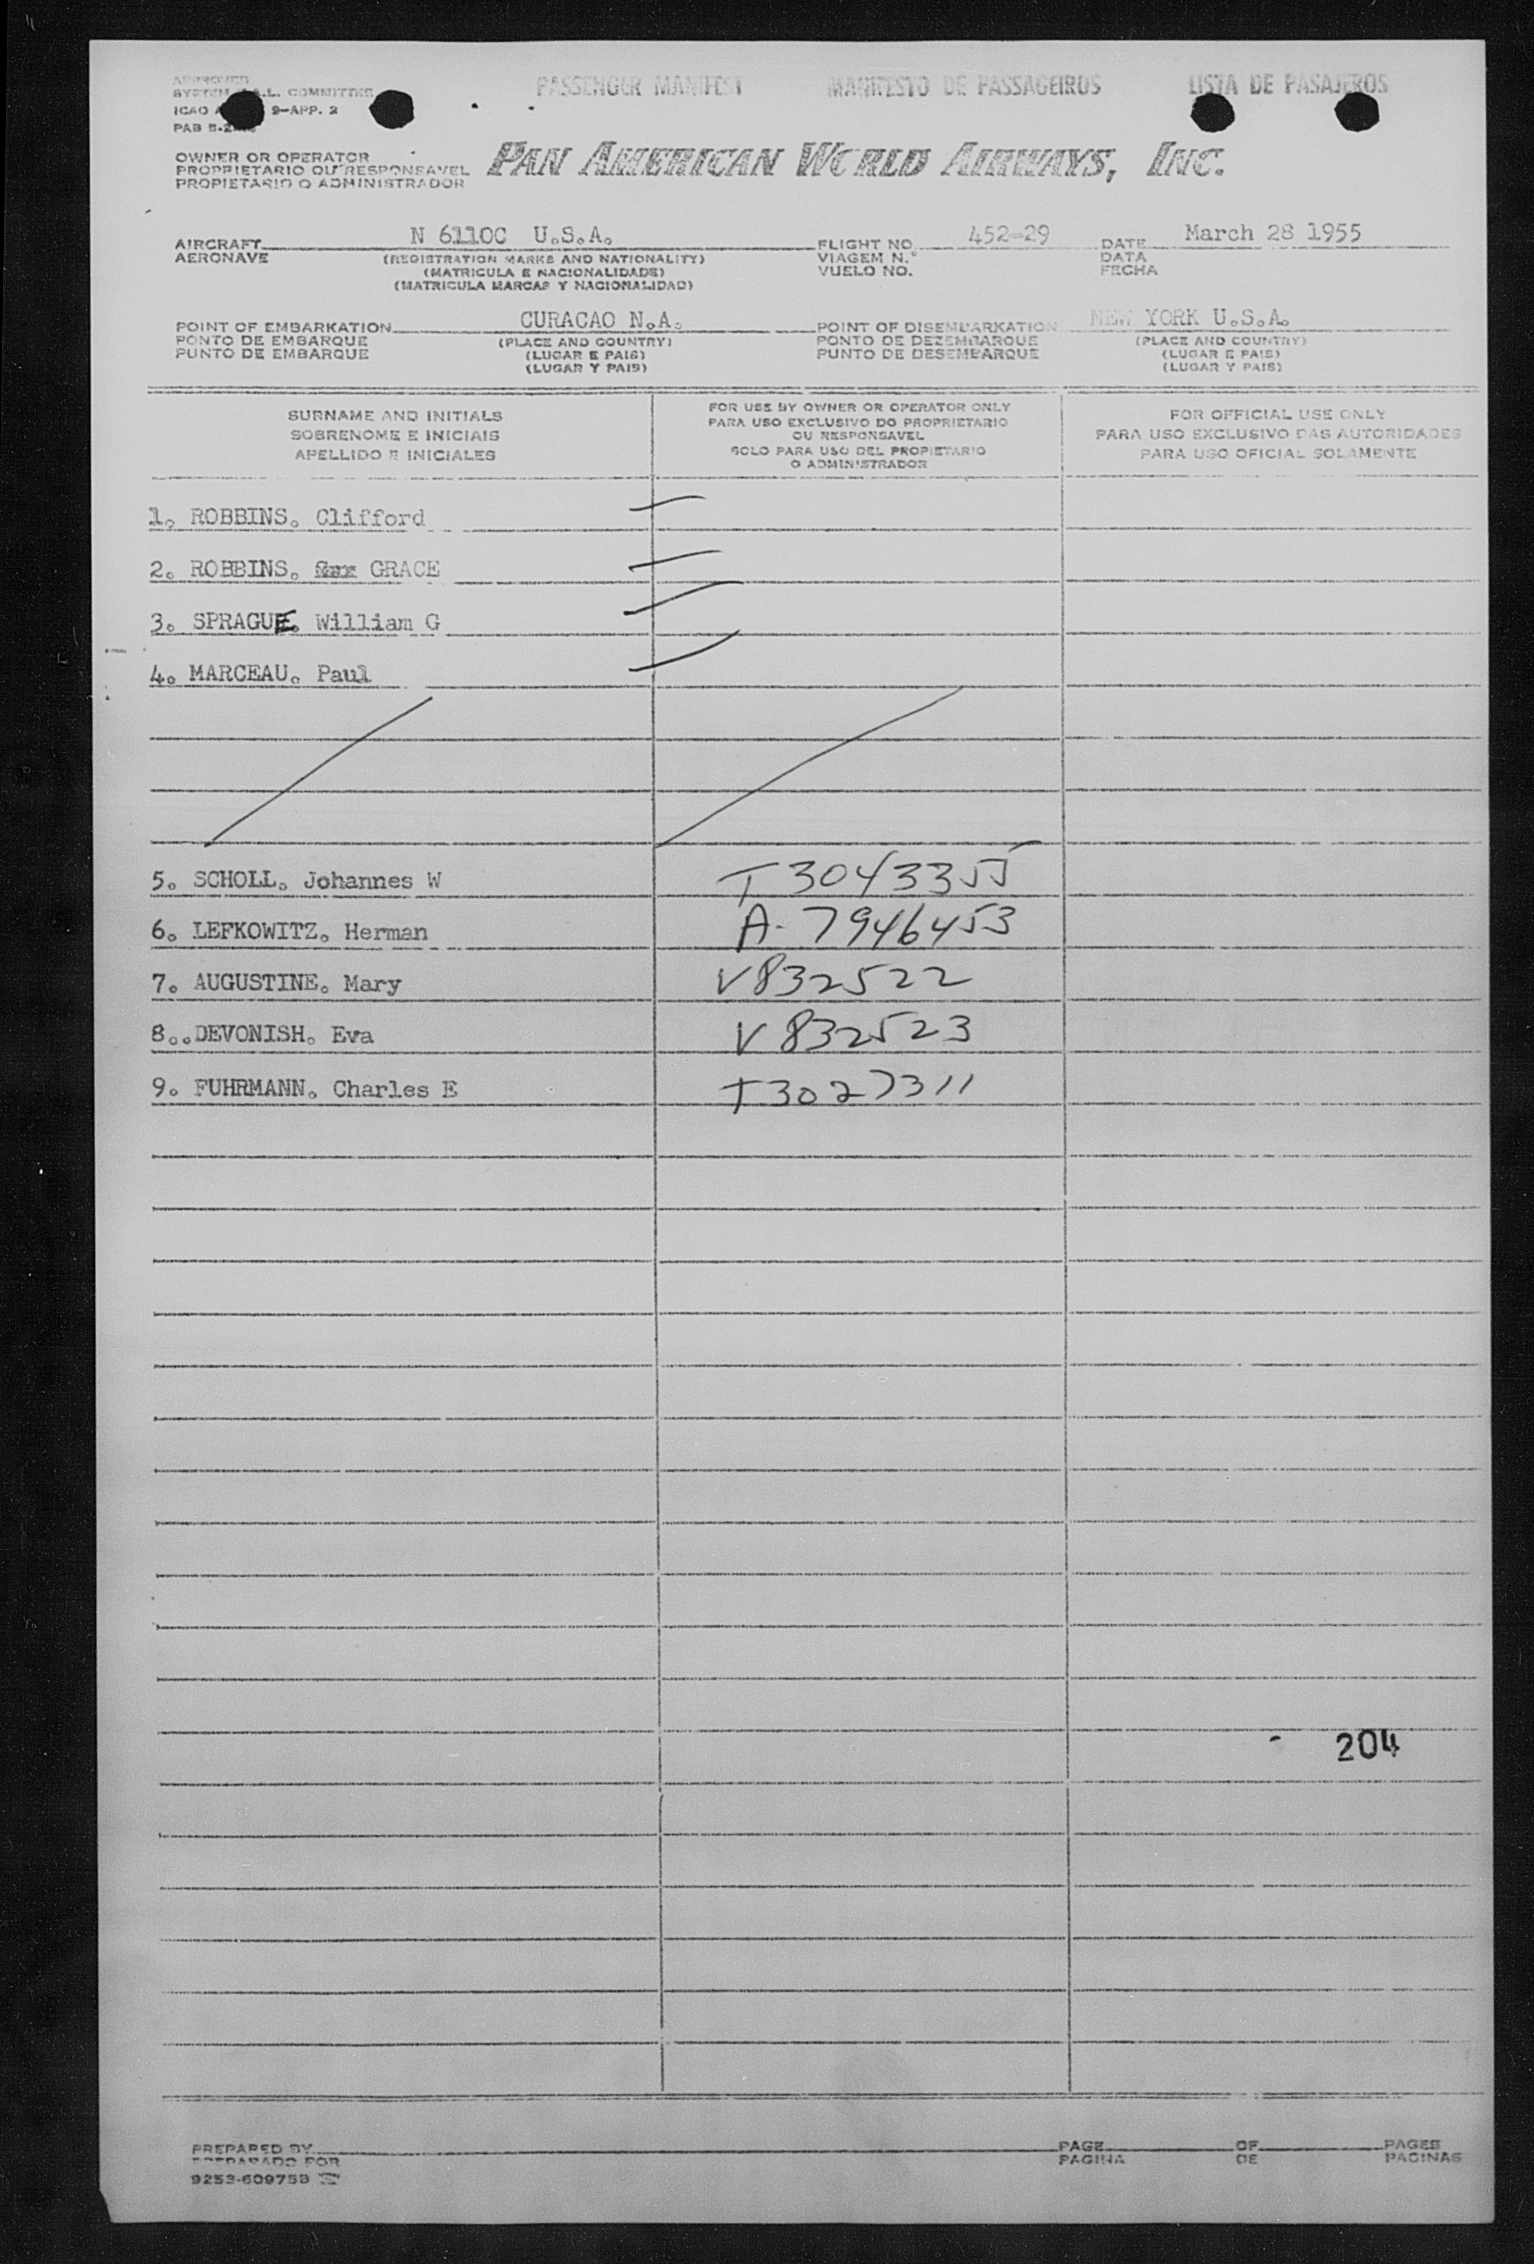 APPROVED PASSENGER MANIFEST MANIFESTO DE PASSAGEIROS LISTA DE PASAJEROS
SYSTEM A.L. COMMITTEE
ICAO 9-APP. 2
PAB
OWNER OR OPERATOR
PROPRIETARIO OU RESPONSAVEL
PROPIETARIO O ADMINISTRADOR
PAN AMERICAN WORLD AIRWAYS, INC.
AIRCRAFT N 6110C U.S.A. FLIGHT NO. 452-29 DATE March 28 1955
AERONAVE (REGISTRATION MARKS AND NATIONALITY) VIAGEM N.° DATA
(MATRICULA E NACIONALIDADE) VUELO NO. FECHA
(MATRICULA MARCAS Y NACIONALIDAD)
POINT OF EMBARKATION CURACAO N.A. POINT OF DISEMBARKATION NEW YORK U.S.A.
PONTO DE EMBARQUE (PLACE AND COUNTRY) PONTO DE DEZEMBARQUE (PLACE AND COUNTRY)
PUNTO DE EMBARQUE (LUGAR E PAIS) PUNTO DE DESEMBARQUE (LUGAR E PAIS)
(LUGAR Y PAIS) (LUGAR Y PAIS)
SURNAME AND INITIALS
SOBRENOME E INICIAIS
APELLIDO E INICIALES
FOR USE BY OWNER OR OPERATOR ONLY
PARA USO EXCLUSIVO DO PROPRIETARIO
OU RESPONSAVEL
SOLO PARA USO DEL PROPIETARIO
O ADMINISTRADOR
FOR OFFICIAL USE ONLY
PARA USO EXCLUSIVO DAS AUTORIDADES
PARA USO OFICIAL SOLAMENTE
1. ROBBINS. Clifford
2. ROBBINS. GRACE
3. SPRAGUE. William G
4. MARCEAU. Paul
5. SCHOLL. Johannes W T3043355
6. LEFKOWITZ. Herman A-7946453
7. AUGUSTINE. Mary V832522
8..DEVONISH. Eva V832523
9. FUHRMANN. Charles E T3027311
204
PREPARED BY PAGE OF PAGES
PREPARADO POR PAGINA DE PAGINAS
9253-609758